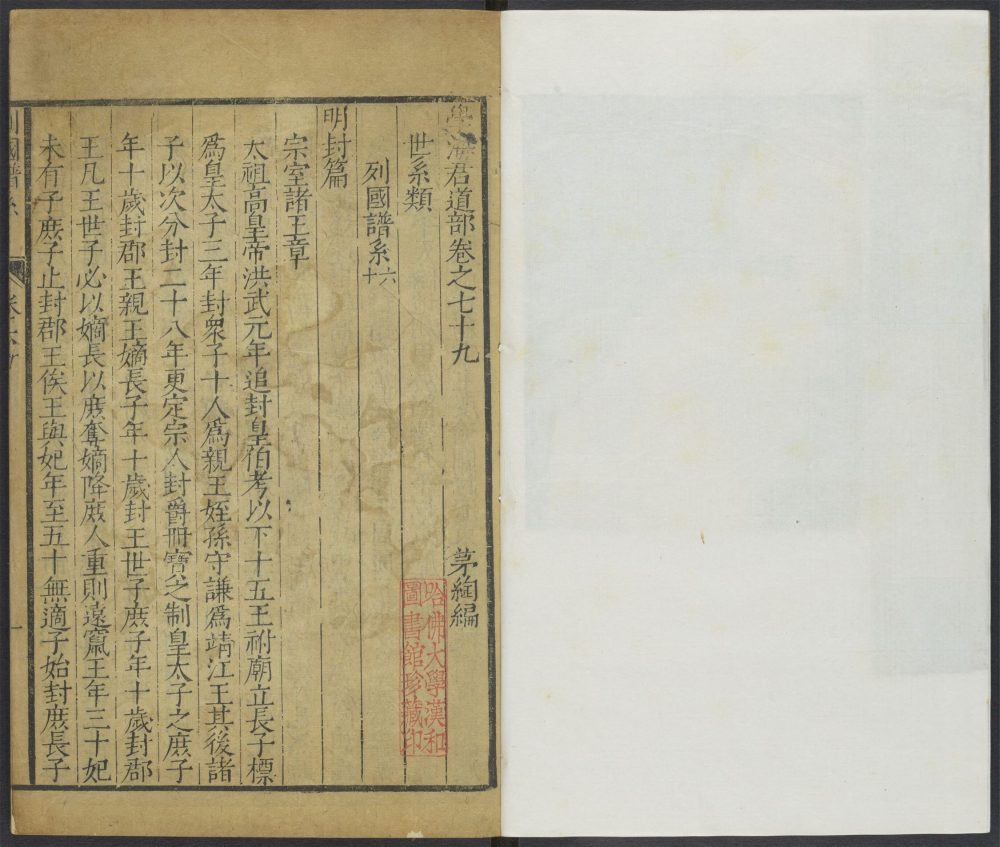 學海君道部卷之七十九
茅綯編
哈佛大學漢和
圖書館珍藏印
世系類
列國譜系六十
明封篇
宗室諸王章
太祖高皇帝洪武元年追封皇伯考以下十五王祔廟立長子標
爲皇太子三年封衆子十人爲親王姪孫守謙爲靖江王其後諸
子以次分封二十八年更定宗人封爵冊寶之制皇太子之庶子
年十歲封郡王親王嫡長子年十歲封王世子庶子年十歲封郡
王凡王世子必以嫡長以庶奪嫡降庶人重則遠竄王年三十妃
未有子庶子止封郡王俟王與妃年至五十無適子始封庶長子
列國譜系
一